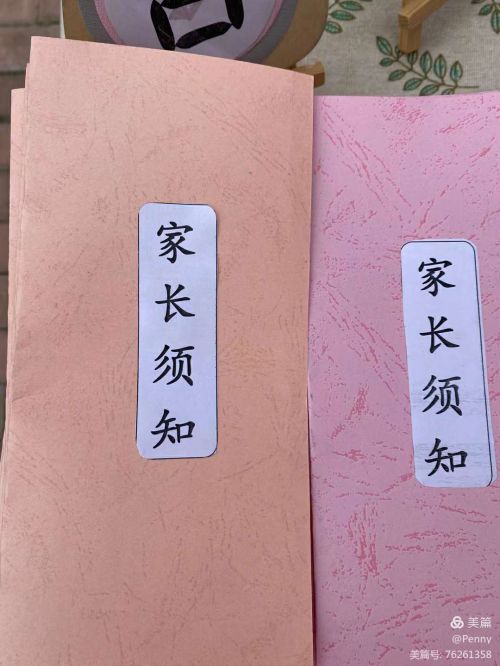 家长须知
家长须知
美篇
@Penny
美篇号: 76261358